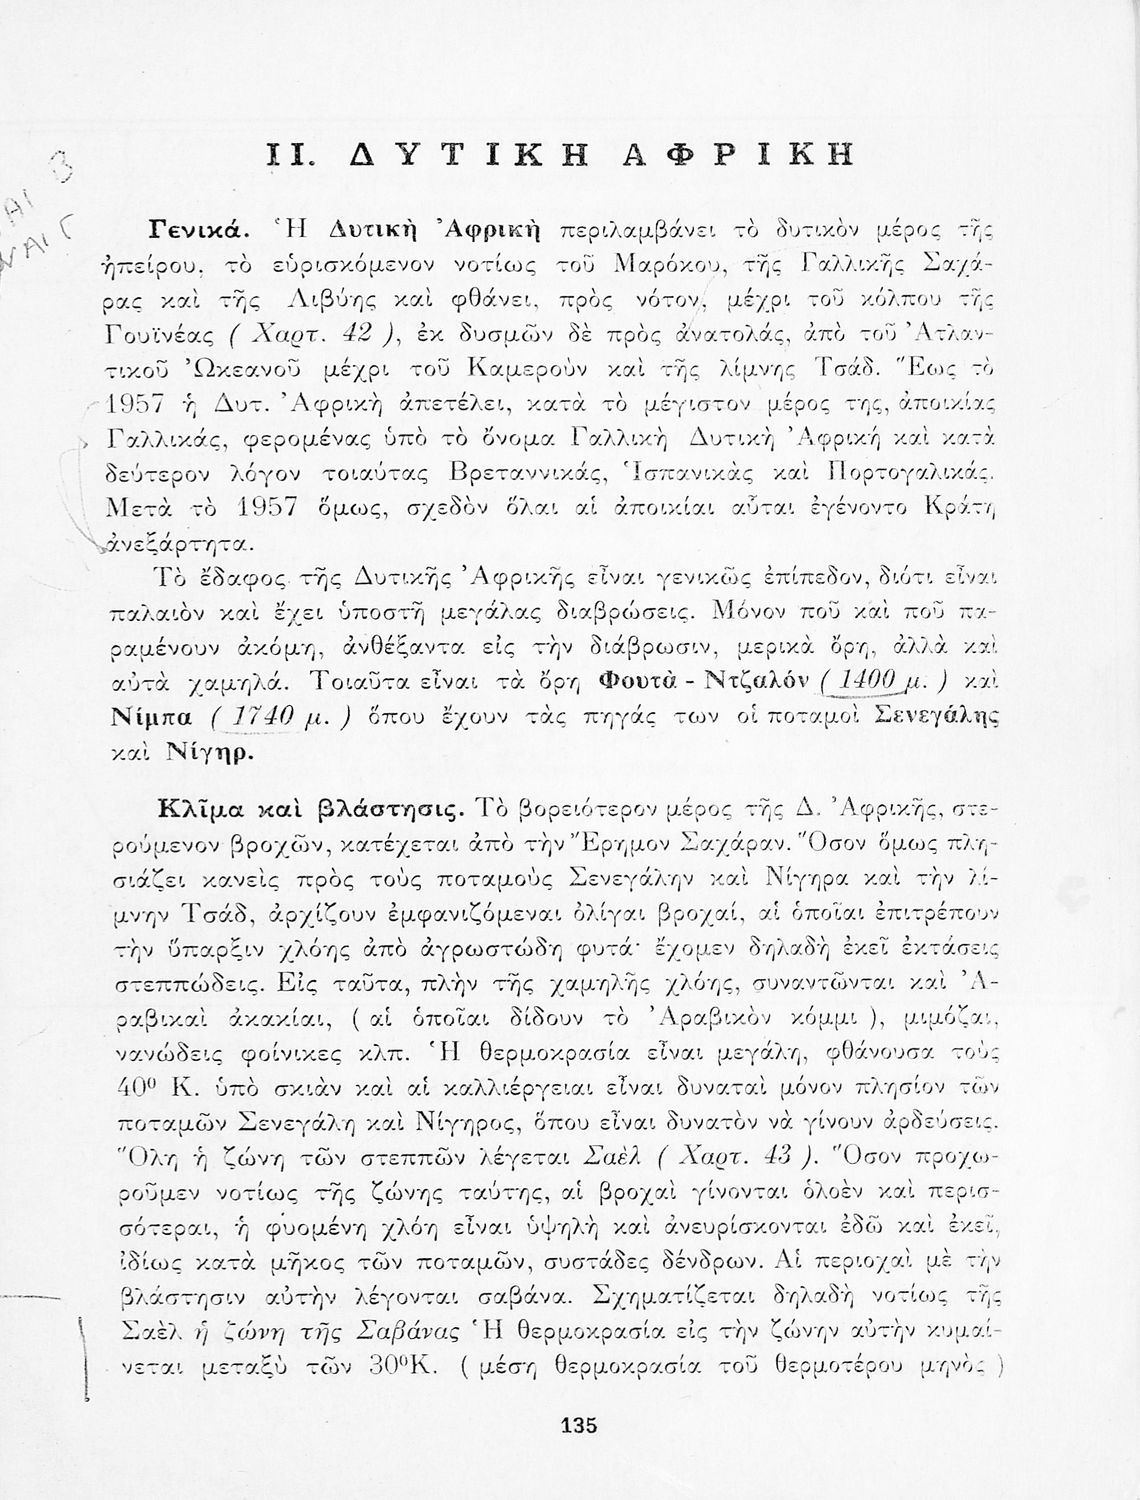 ΙΙ. ΔΥΤΙΚΗ ΑΦΡΙΚΗ
Γενικά. Ἡ Δυτικὴ Ἀφρικὴ περιλαμβάνει τὸ δυτικὸν μέρος τῆς
ἠπείρου, τὸ εὑρισκόμενον νοτίως τοῦ Μαρόκου, τῆς Γαλλικῆς Σαχά-
ρας καὶ τῆς Λιβύης καὶ φθάνει, πρὸς νότον, μέχρι τοῦ κόλπου τῆς
Γουϊνέας ( Χαρτ. 42 ), ἐκ δυσμῶν δὲ πρὸς ἀνατολάς, ἀπὸ τοῦ Ἀτλαν-
τικοῦ Ὠκεανοῦ μέχρι τοῦ Καμεροὺν καὶ τῆς λίμνης Τσάδ. Ἕως τὸ
1957 ἡ Δυτ. Ἀφρικὴ ἀπετέλει, κατὰ τὸ μέγιστον μέρος της, ἀποικίας
Γαλλικάς, φερομένας ὑπὸ τὸ ὄνομα Γαλλικὴ Δυτικὴ Ἀφρική καὶ κατὰ
δεύτερον λόγον τοιαύτας Βρεταννικάς, Ἱσπανικὰς καὶ Πορτογαλικάς.
Μετὰ τὸ 1957 ὅμως, σχεδὸν ὅλαι αἱ ἀποικίαι αὗται ἐγένοντο Κράτη
ἀνεξάρτητα.
Τὸ ἔδαφος τῆς Δυτικῆς Ἀφρικῆς εἶναι γενικῶς ἐπίπεδον, διότι εἶναι
παλαιὸν καὶ ἔχει ὑποστῆ μεγάλας διαβρώσεις. Μόνον ποῦ καὶ ποῦ πα-
ραμένουν ἀκόμη, ἀνθέξαντα εἰς τὴν διάβρωσιν, μερικὰ ὄρη, ἀλλὰ καὶ
αὐτὰ χαμηλά. Τοιαῦτα εἶναι τὰ ὄρη Φουτὰ - Ντζαλόν ( 1400 μ. ) καὶ
Νίμπα ( 1740 μ. ) ὅπου ἔχουν τὰς πηγάς των οἱ ποταμοὶ Σενεγάλης
καὶ Νίγηρ.
Κλῖμα καὶ βλάστησις. Τὸ βορειότερον μέρος τῆς Δ. Ἀφρικῆς, στε-
ρούμενον βροχῶν, κατέχεται ἀπὸ τὴν Ἔρημον Σαχάραν. Ὅσον ὅμως πλη-
σιάζει κανεὶς πρὸς τοὺς ποταμοὺς Σενεγάλην καὶ Νίγηρα καὶ τὴν λί-
μνην Τσάδ, ἀρχίζουν ἐμφανιζόμεναι ὀλίγαι βροχαί, αἱ ὁποῖαι ἐπιτρέπουν
τὴν ὕπαρξιν χλόης ἀπὸ ἀγρωστώδη φυτά· ἔχομεν δηλαδὴ ἐκεῖ ἐκτάσεις
στεππώδεις. Εἰς ταῦτα, πλὴν τῆς χαμηλῆς χλόης, συναντῶνται καὶ Ἀ-
ραβικαὶ ἀκακίαι, ( αἱ ὁποῖαι δίδουν τὸ Ἀραβικὸν κόμμι ), μιμόζαι,
νανώδεις φοίνικες κλπ. Ἡ θερμοκρασία εἶναι μεγάλη, φθάνουσα τοὺς
40º Κ. ὑπὸ σκιὰν καὶ αἱ καλλιέργειαι εἶναι δυναταὶ μόνον πλησίον τῶν
ποταμῶν Σενεγάλη καὶ Νίγηρος, ὅπου εἶναι δυνατὸν νὰ γίνουν ἀρδεύσεις.
Ὅλη ἡ ζώνη τῶν στεππῶν λέγεται Σαὲλ ( Χαρτ. 43 ). Ὅσον προχω-
ροῦμεν νοτίως τῆς ζώνης ταύτης, αἱ βροχαὶ γίνονται ὁλοὲν καὶ περισ-
σότεραι, ἡ φυομένη χλόη εἶναι ὑψηλὴ καὶ ἀνευρίσκονται ἐδῶ καὶ ἐκεῖ,
ἰδίως κατὰ μῆκος τῶν ποταμῶν, συστάδες δένδρων. Αἱ περιοχαὶ μὲ τὴν
βλάστησιν αὐτὴν λέγονται σαβάνα. Σχηματίζεται δηλαδὴ νοτίως τῆς
Σαὲλ ἡ ζώνη τῆς Σαβάνας Ἡ θερμοκρασία εἰς τὴν ζώνην αὐτὴν κυμαί-
νεται μεταξὺ τῶν 30ºΚ. ( μέση θερμοκρασία τοῦ θερμοτέρου μηνὸς )
135